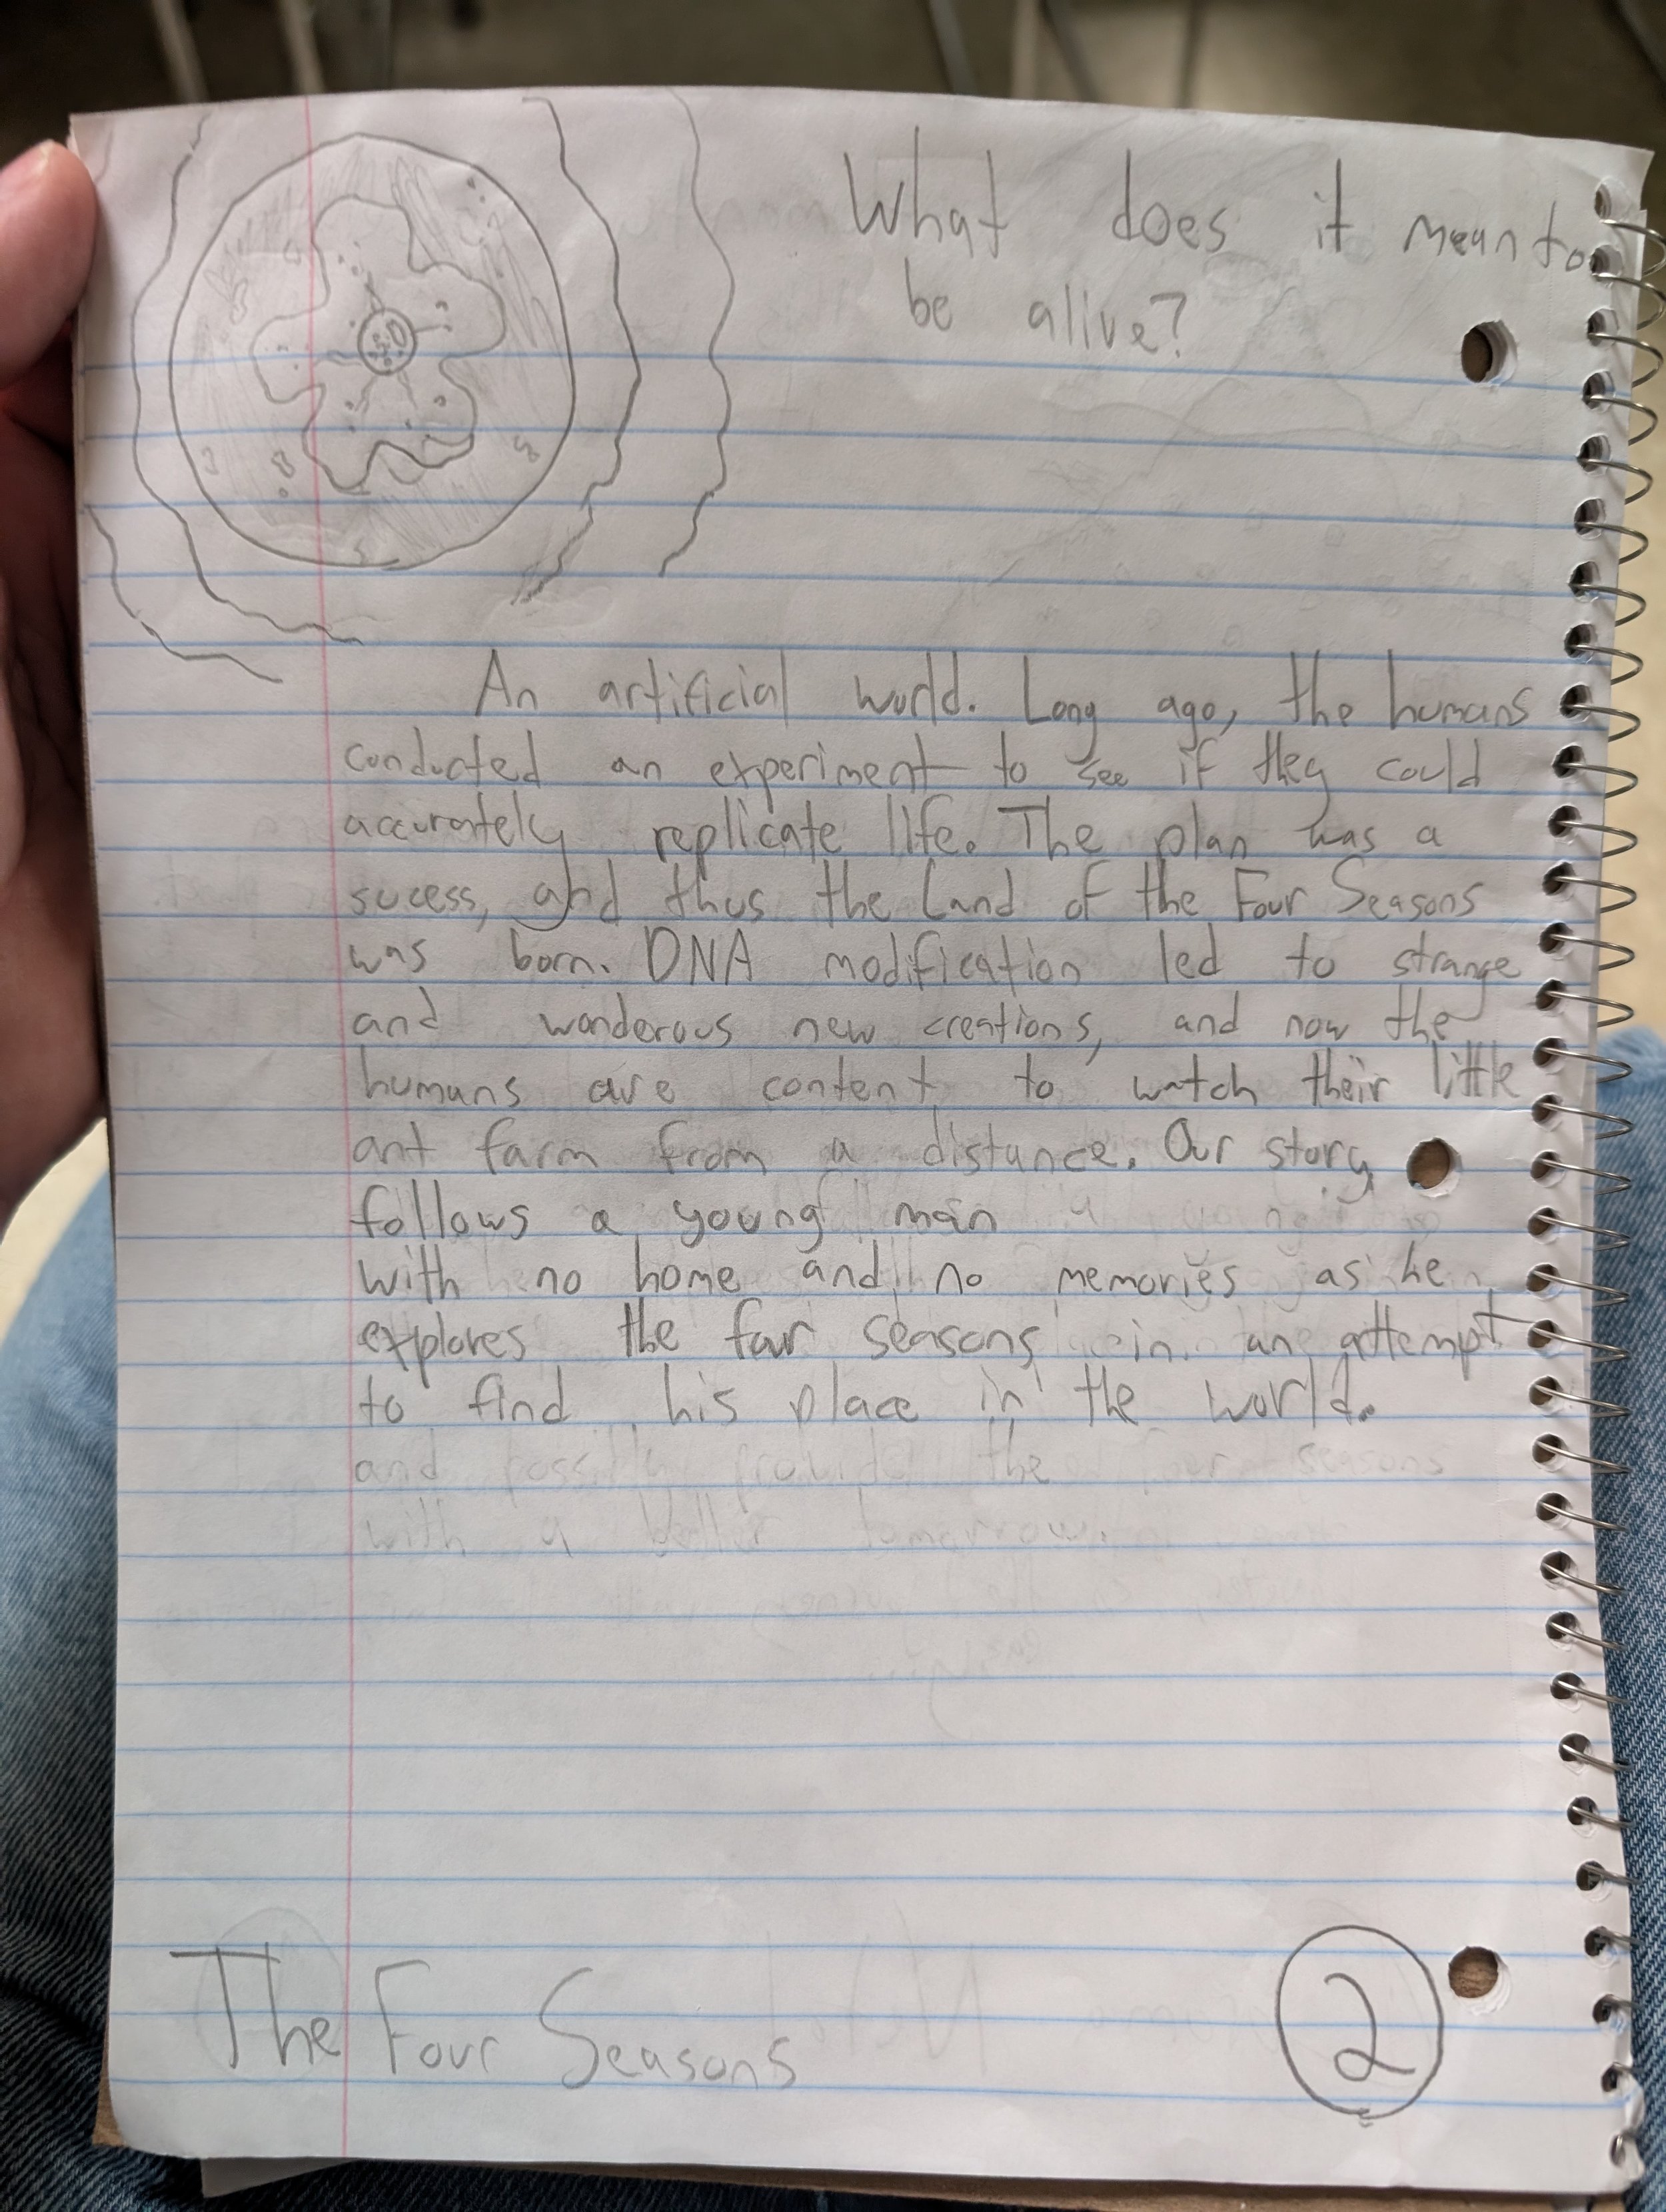 What does it mean to
be alive?
An artificial world. Long ago, the humans
conducted an experiment to see if they could
accurately replicate life. The plan was a
sucess, and thus the Land of the Four Seasons
was born. DNA modification led to strange
and wonderous new creations, and now the
humans are content to watch their little
ant farm from a distance. Our story
follows a young man
with no home and no memories as he
explores the four seasons in an attempt
to find his place in the world.
and possibly provide the four seasons
with a better tomorrow.
The Four Seasons
2